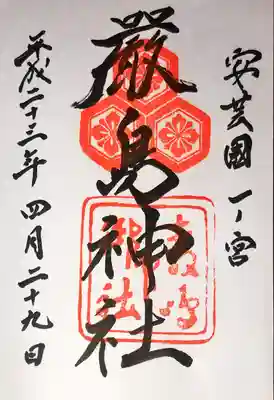 安芸國一ノ宮
厳島神社
平成二十三年四月二十九日
嚴島
神社